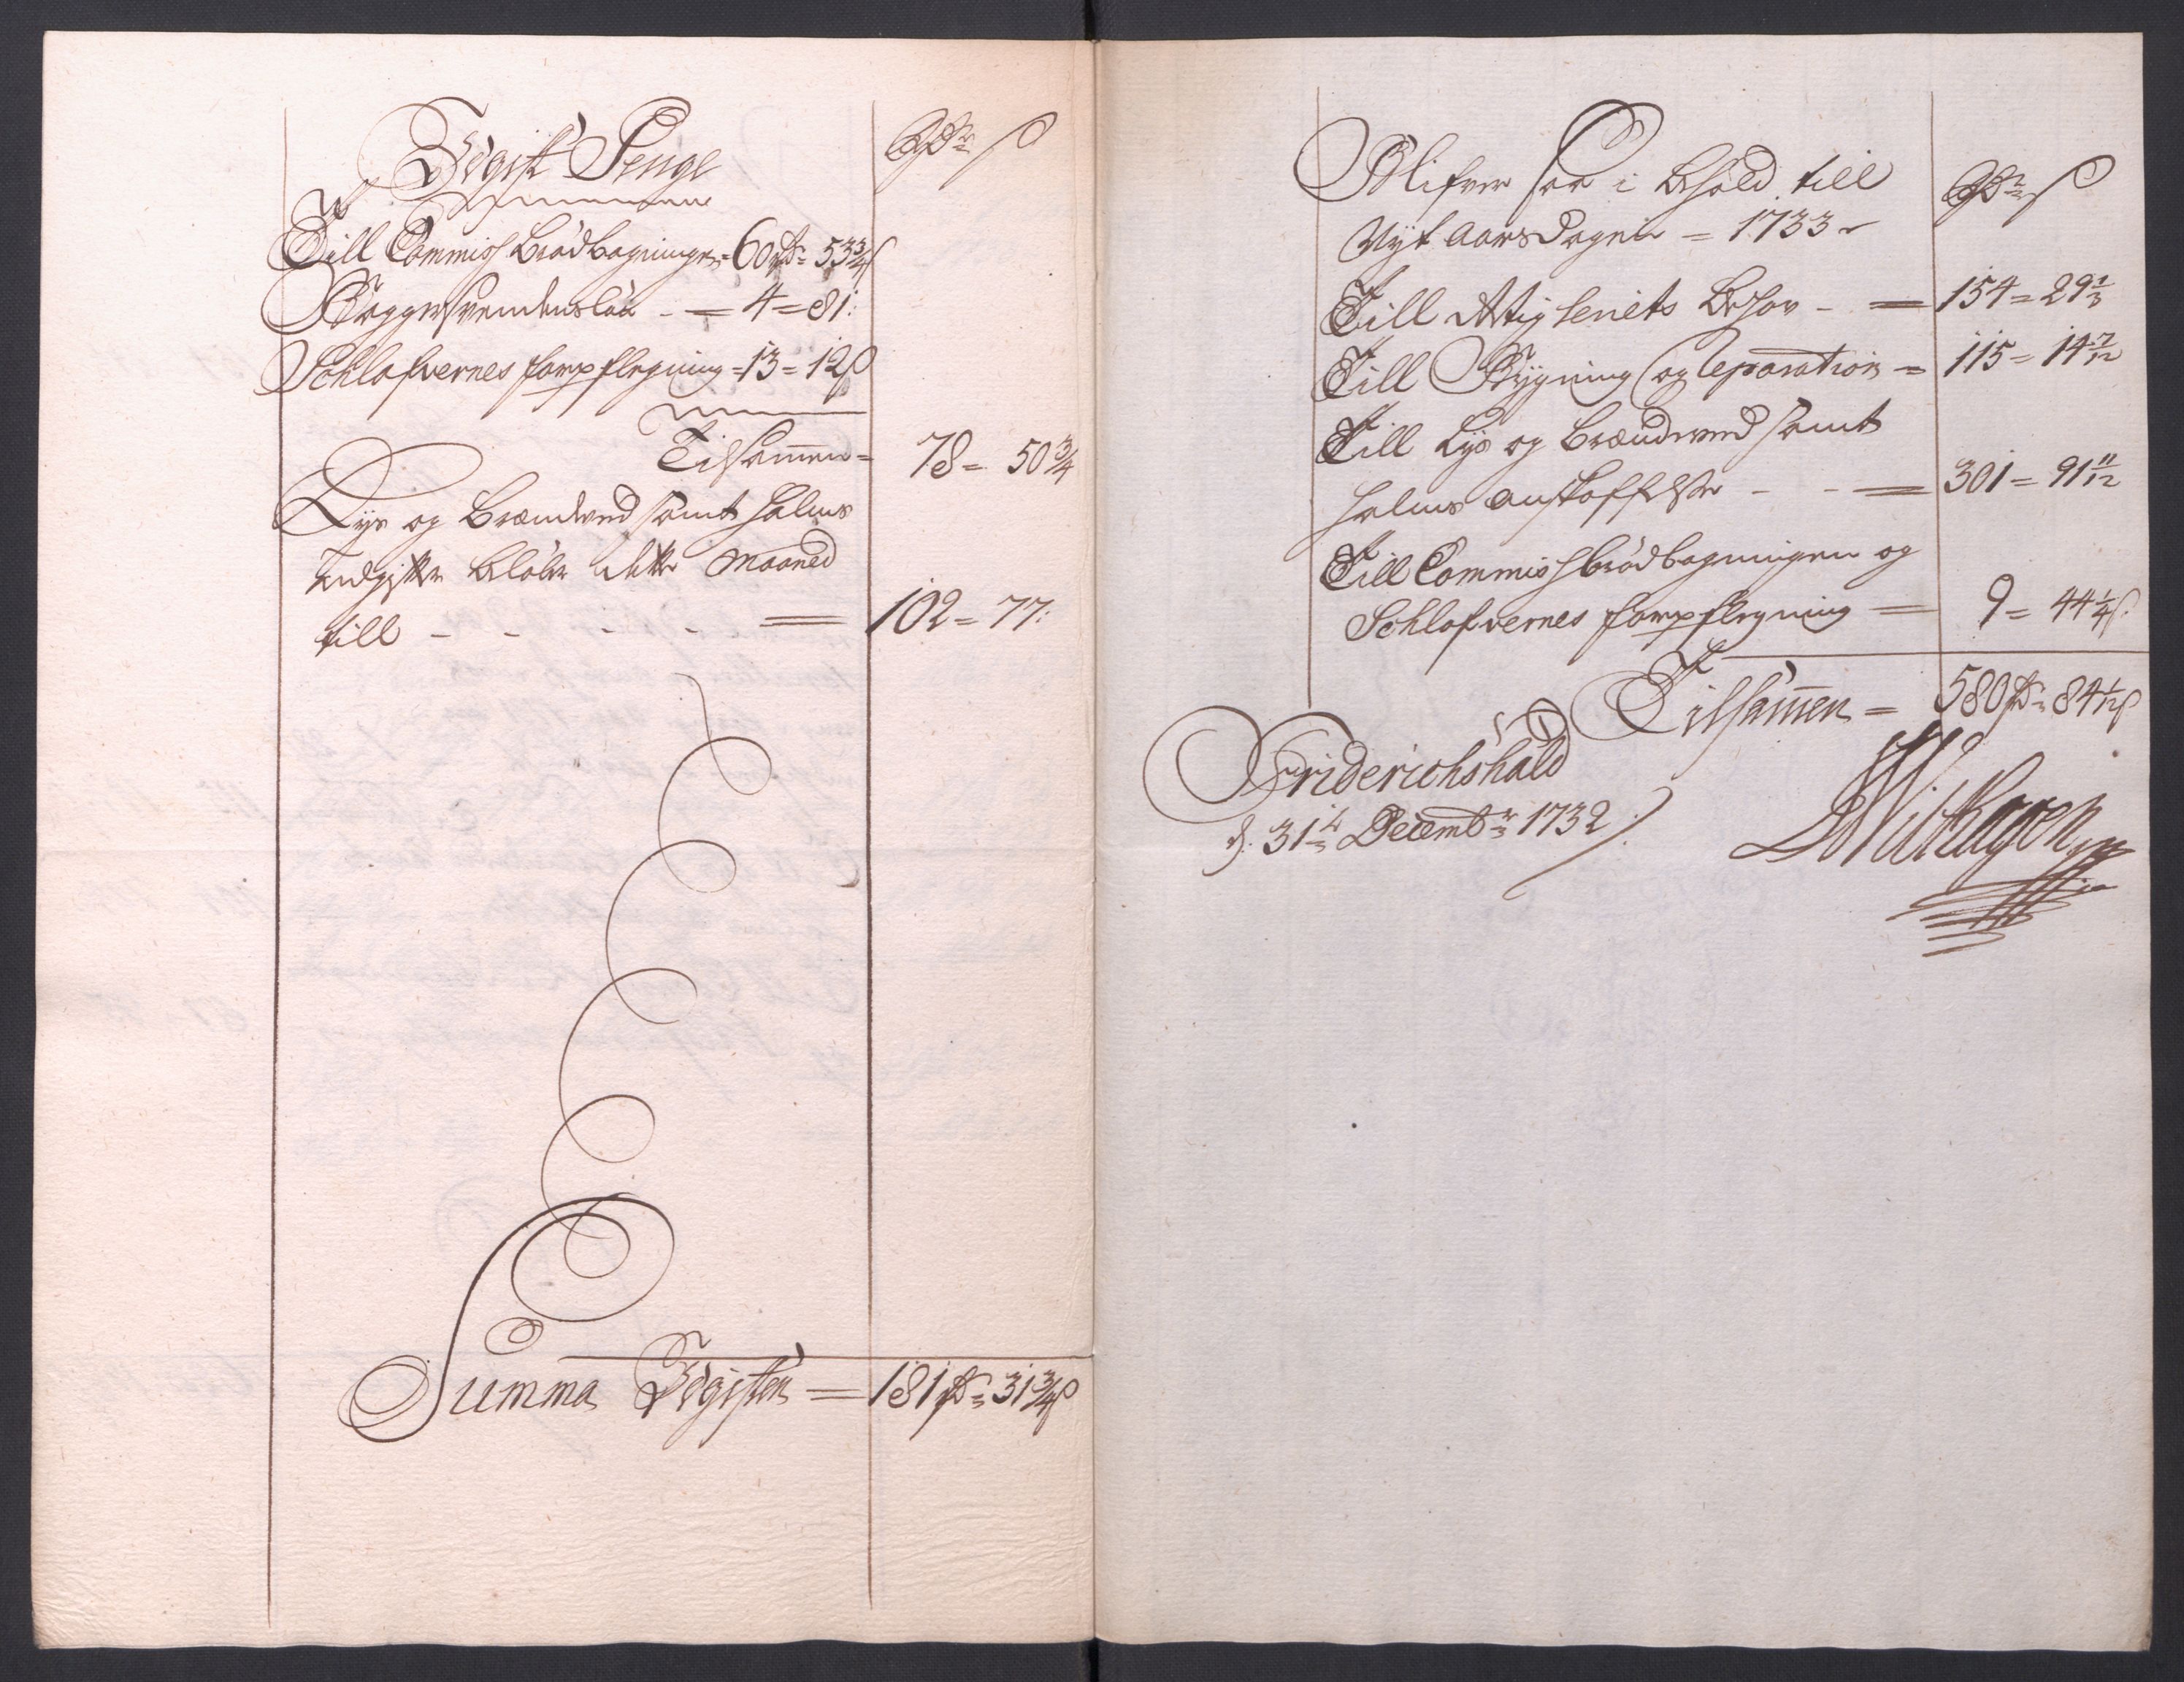 Udgift Penge
Rdr ß
Till Commisß brödbagningen = 60 rd = 53 3/4 ß
Baggersvendenslön - = 4 = 81:
Schlafvernes forpflegning = 13 = 12 ß
Tilsamen = 78 = 50 3/4
Lys og brændeved samt halms
udgifter beløber dette Maaned
till - - - - = 102 = 77:
Summa Udgiften = 181 rd = 31 3/4 ß
Blifver saa i behold till
Nyt Aarsdagen = 1733
Rdr ß
Till Artigleriets behov - = 154 = 29 1/3
Till Bygning og Reparation = 115 = 14 7/12
Till Lys og brændeved samt
halms anskaffelse - - = 301 = 91 11/12
Till Commisßbrödbagningen og
Schlafvernes forpflegning = 9 = 44 1/4 ß
Tilsamen = 580 rd = 84 1/12 ß
Friderichshald
d. 31te Decembr 1732